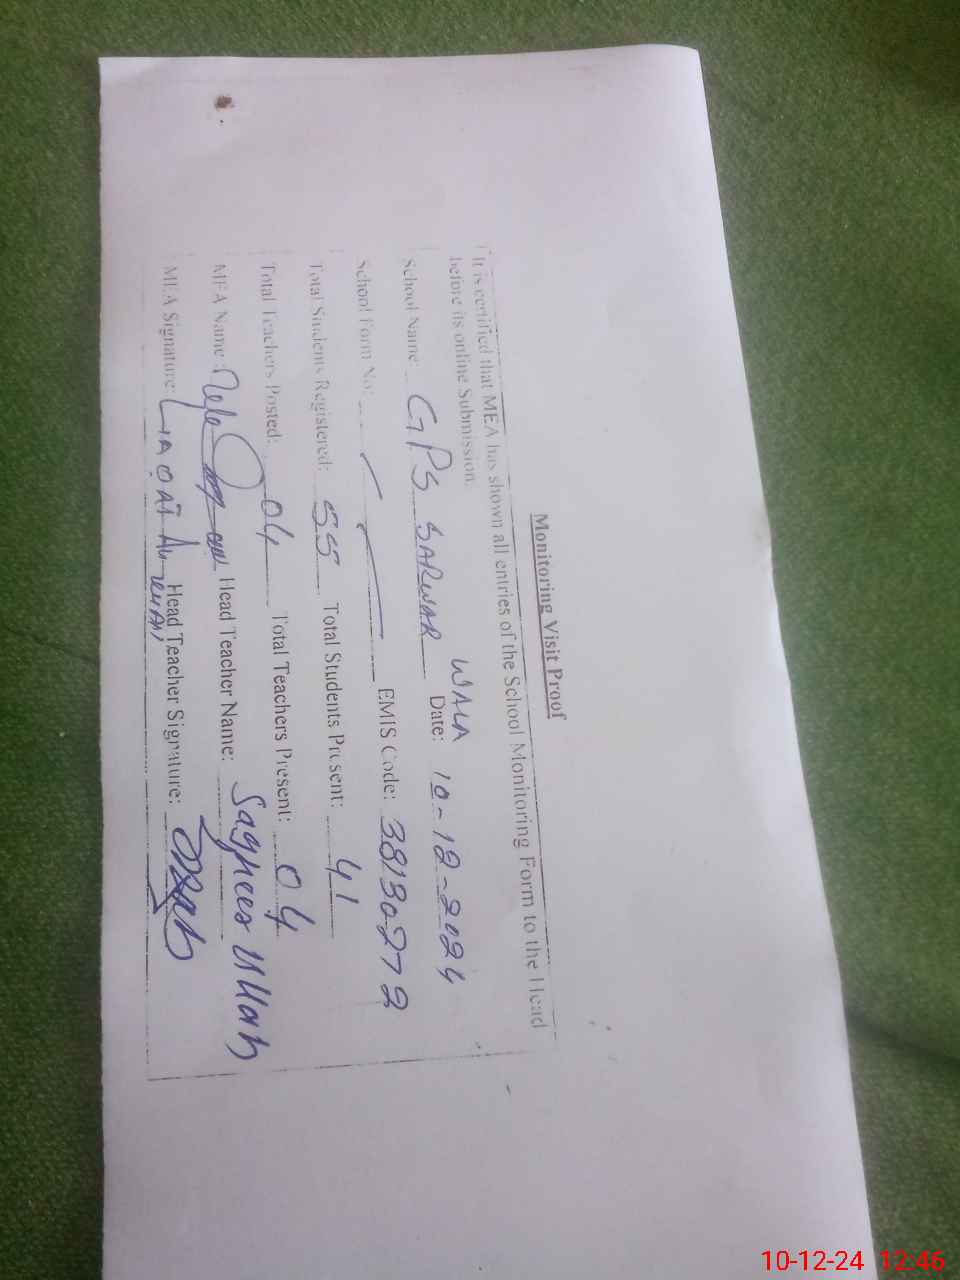 Monitoring Visit Proof
It is certified that MEA has shown all entries of the School Monitoring Form to the Head
before its online Submission.
School Name: GPS SARWAR WALA Date: 10-12-2024
School Form No: EMIS Code: 38130272
Total Students Registered: 55 Total Students Present: 41
Total Teachers Posted: 04 Total Teachers Present: 04
MEA Name: Head Teacher Name: Sagheer Ullah
MEA Signature: LIAQAT Head Teacher Signature:
10-12-24 12:46